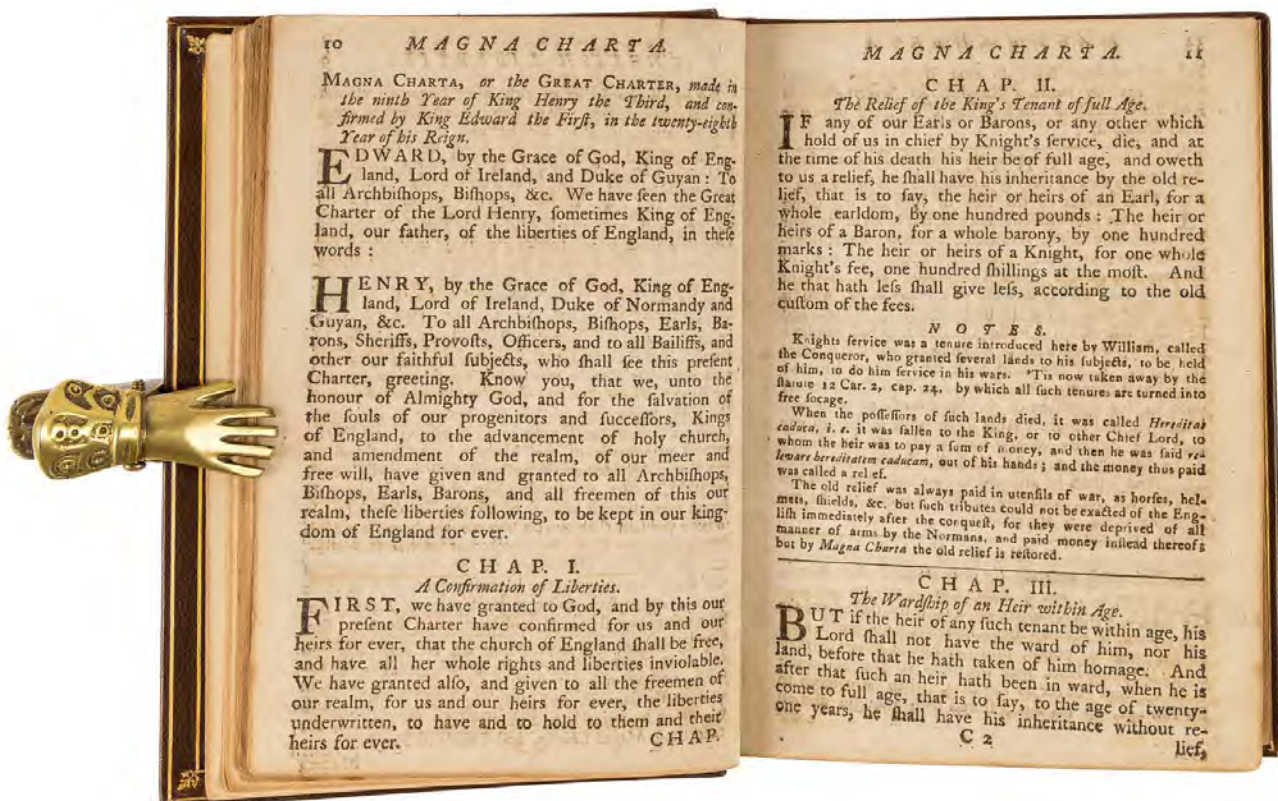 10 MAGNA CHARTA.
MAGNA CHARTA, or the GREAT CHARTER, made in
the ninth Year of King Henry the Third, and con-
firmed by King Edward the Firſt, in the twenty-eighth
Year of his Reign.
EDWARD, by the Grace of God, King of Eng-
land, Lord of Ireland, and Duke of Guyan: To
all Archbiſhops, Biſhops, &c. We have ſeen the Great
Charter of the Lord Henry, ſometimes King of Eng-
land, our father, of the liberties of England, in theſe
words:
HENRY, by the Grace of God, King of Eng-
land, Lord of Ireland, Duke of Normandy and
Guyan, &c. To all Archbiſhops, Biſhops, Earls, Ba-
rons, Sheriffs, Provoſts, Officers, and to all Bailiffs, and
other our faithful ſubjects, who ſhall ſee this preſent
Charter, greeting. Know you, that we, unto the
honour of Almighty God, and for the ſalvation of
the ſouls of our progenitors and ſucceſſors, Kings
of England, to the advancement of holy church,
and amendment of the realm, of our meer and
free will, have given and granted to all Archbiſhops,
Biſhops, Earls, Barons, and all freemen of this our
realm, theſe liberties following, to be kept in our king-
dom of England for ever.
CHAP. I.
A Confirmation of Liberties.
FIRST, we have granted to God, and by this our
preſent Charter have confirmed for us and our
heirs for ever, that the church of England ſhall be free,
and have all her whole rights and liberties inviolable.
We have granted alſo, and given to all the freemen of
our realm, for us and our heirs for ever, the liberties
underwritten, to have and to hold to them and their
heirs for ever. CHAP.
MAGNA CHARTA. 11
CHAP. II.
The Relief of the King's Tenant of full Age.
IF any of our Earls or Barons, or any other which
hold of us in chief by Knight's ſervice, die, and at
the time of his death his heir be of full age, and oweth
to us a relief, he ſhall have his inheritance by the old re-
lief, that is to ſay, the heir or heirs of an Earl, for a
whole earldom, by one hundred pounds: The heir or
heirs of a Baron, for a whole barony, by one hundred
marks: The heir or heirs of a Knight, for one whole
Knight's fee, one hundred ſhillings at the moſt. And
he that hath leſs ſhall give leſs, according to the old
cuſtom of the fees.
NOTES.
Knights ſervice was a tenure introduced here by William, called
the Conqueror, who granted ſeveral lands to his ſubjects, to be held
of him, to do him ſervice in his wars. 'Tis now taken away by the
ſtatute 12 Car. 2, cap. 24. by which all ſuch tenures are turned into
free ſocage.
When the poſſeſſors of ſuch lands died, it was called Hereditas
caduca, i. e. it was fallen to the King, or to other Chief Lord, to
whom the heir was to pay a ſum of money, and then he was ſaid re-
levare hereditatem caducam, out of his hands; and the money thus paid
was called a relief.
The old relief was always paid in utenſils of war, as horſes, hel-
mets, ſhields, &c. but ſuch tributes could not be exacted of the Eng-
liſh immediately after the conqueſt, for they were deprived of all
manner of arms by the Normans, and paid money inſtead thereof;
but by Magna Charta the old relief is reſtored.
CHAP. III.
The Wardſhip of an Heir within Age.
BUT if the heir of any ſuch tenant be within age, his
Lord ſhall not have the ward of him, nor his
land, before that he hath taken of him homage. And
after that ſuch an heir hath been in ward, when he is
come to full age, that is to ſay, to the age of twenty-
one years, he ſhall have his inheritance without re-
C 2 lief,